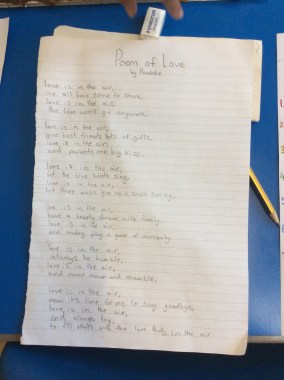 Poem of Love
by
love is in the air,
we all have some to share,
love is in the air,
the love won't go anywhere.
love is in the air,
give best friends lots of gifts,
love is in the air,
and parents one big kiss.
love is in the air,
let the blue birds sing,
love is in the air,
let there noise give us a small spring.
love is in the air,
have a lovely dinner with family,
love is in the air,
and maybe play a game of monopoly.
love is in the air,
always be humble,
love is in the air,
and never moan and
love is in the air,
now it's time for me to say goodbye,
love is in the air,
and always try,
to others with the love that's in the air